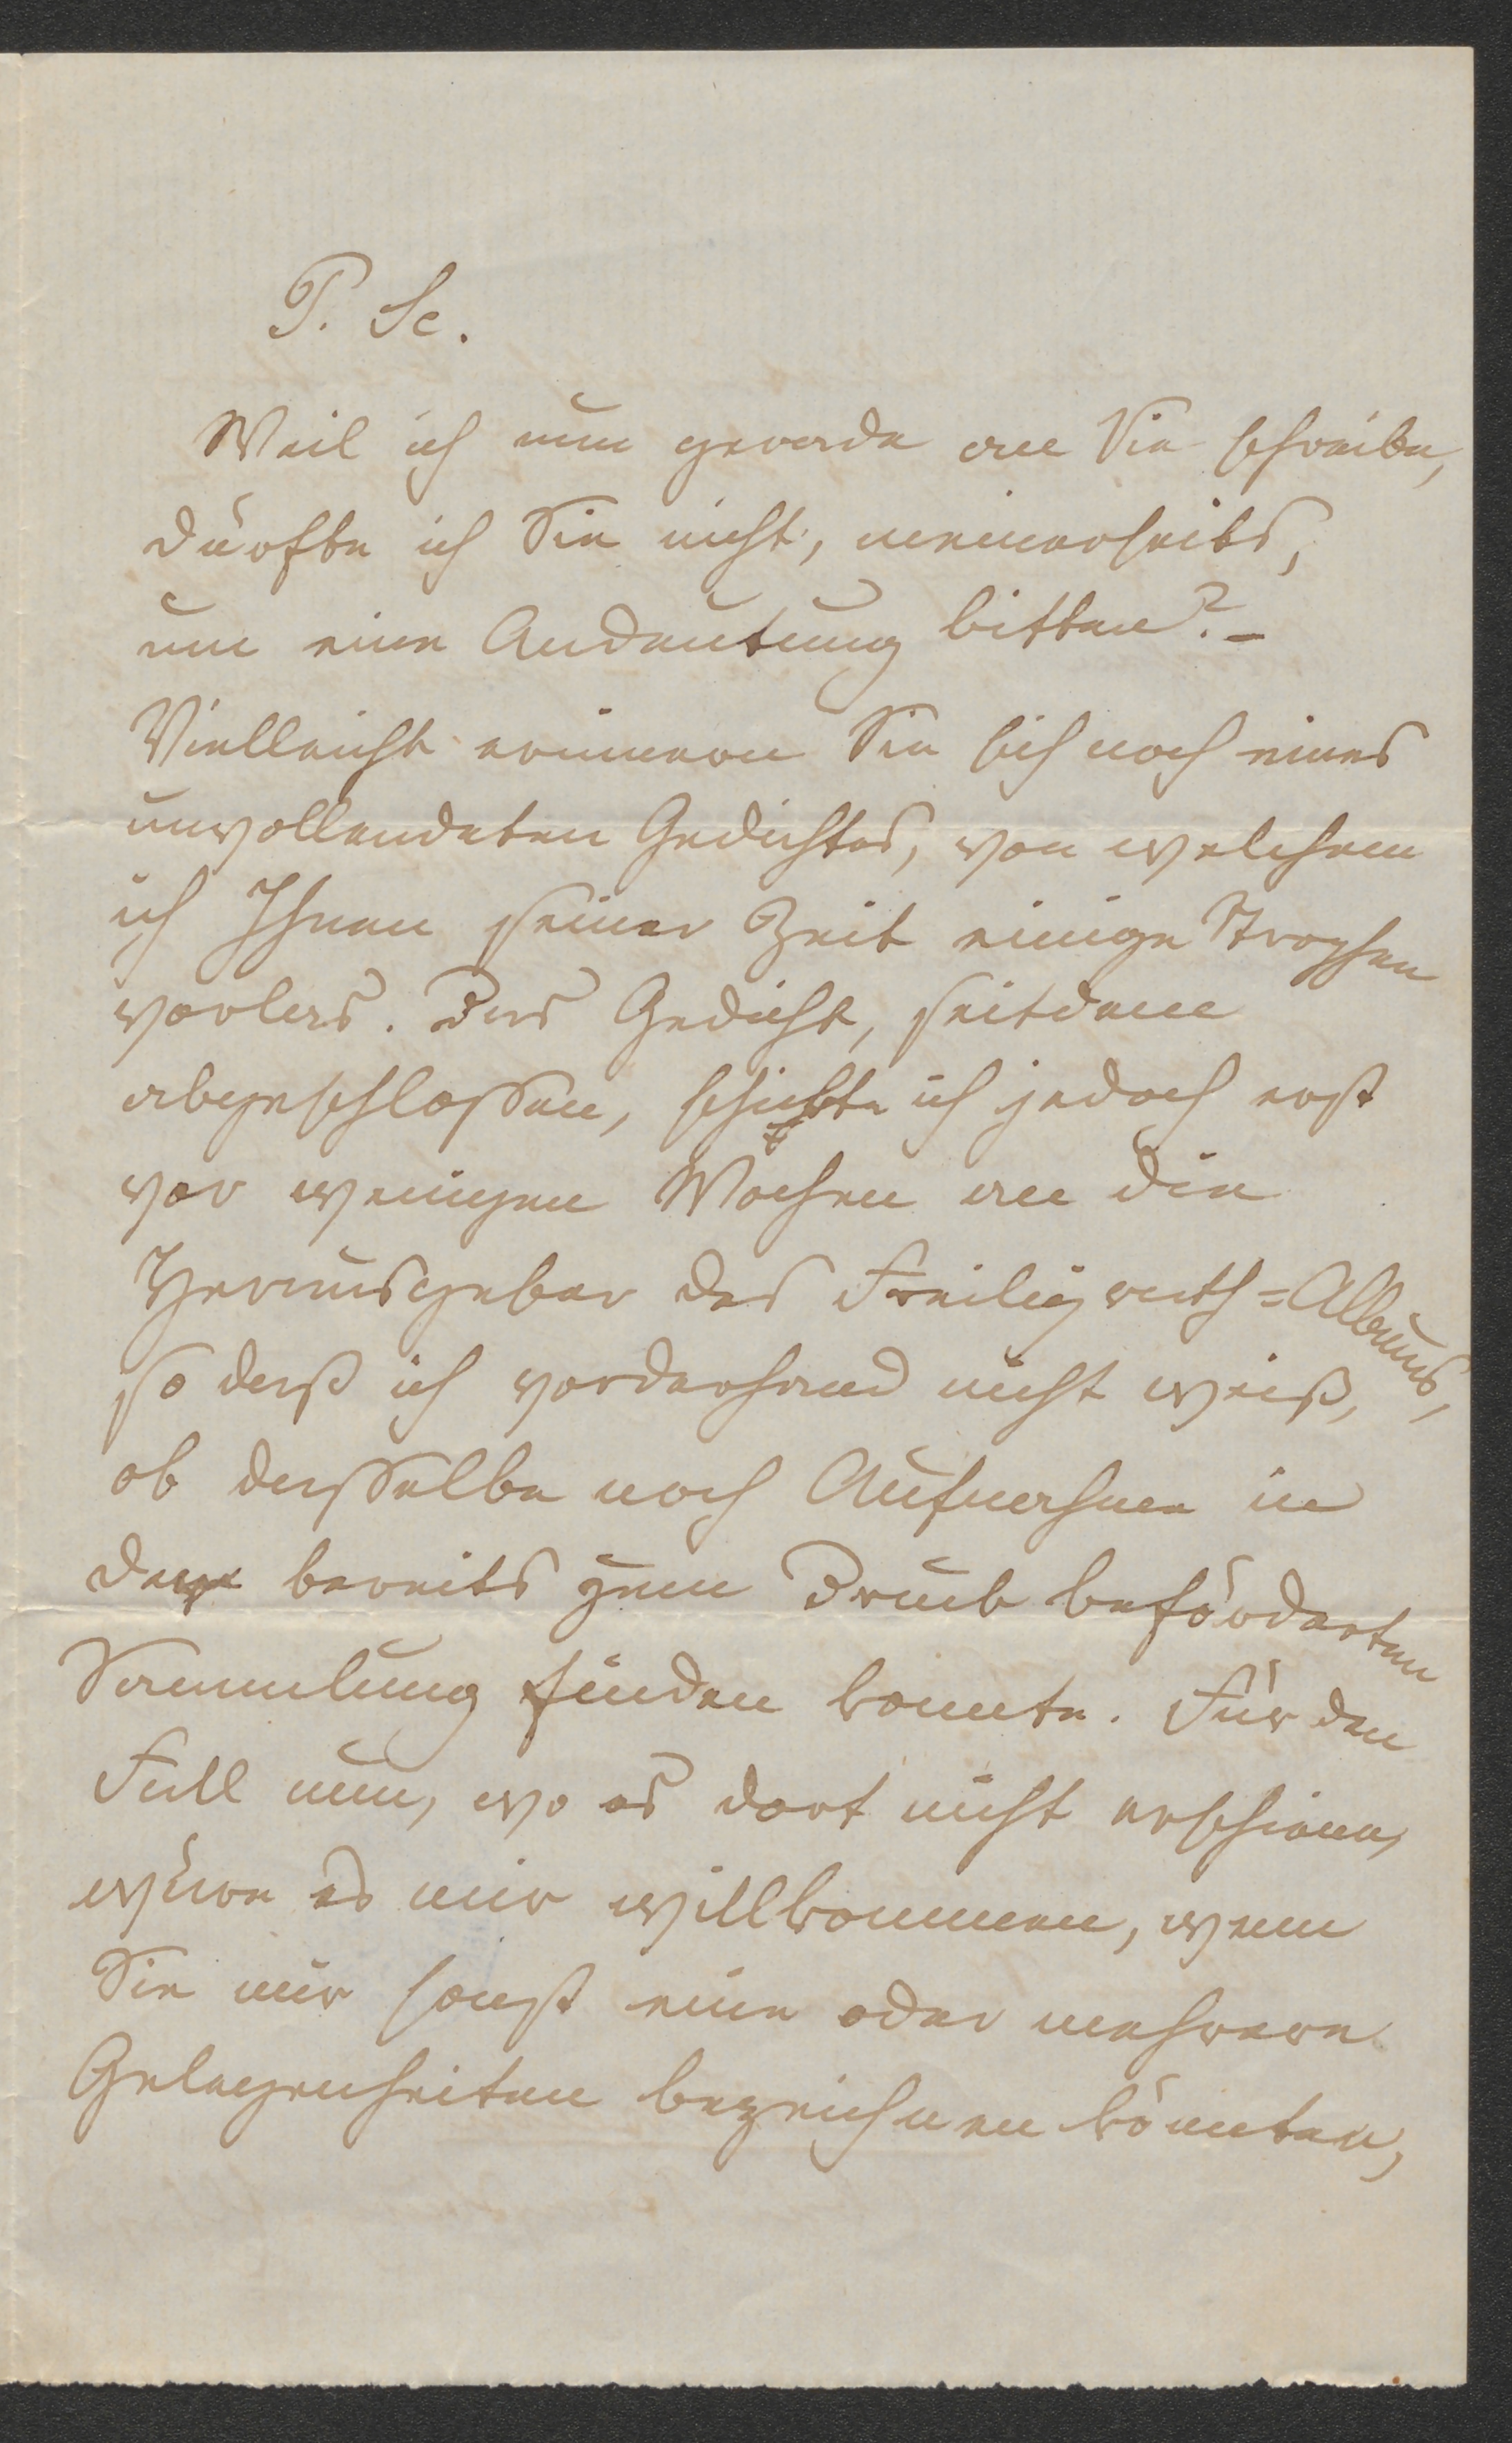 P. Sc.
Weil ich nun gerade an Sie schreibe,
dürfte ich Sie nicht, meinerseits,
um eine Andeutung bitten? –
Vielleicht erinnern Sie sich noch eines
unvollendeten Gedichtes, von welchem
ich Ihnen seiner Zeit einige Strophen
vorlas. Das Gedicht, seitdem
abgeschlossen, schickte ich jedoch erst
vor wenigen Wochen an die
Herausgeber des Freiligrath-Albums,
so daß ich vorderhand nicht weiß,
ob dasselbe noch Aufnahme in
der bereits zum Druck beförderten
Sammlung finden konnte. Für den
Fall nun, wo es dort nicht erschiene,
wäre es mir willkommen, wenn
Sie mir sonst eine oder mehrere
Gelegenheiten bezeichnen könnten,